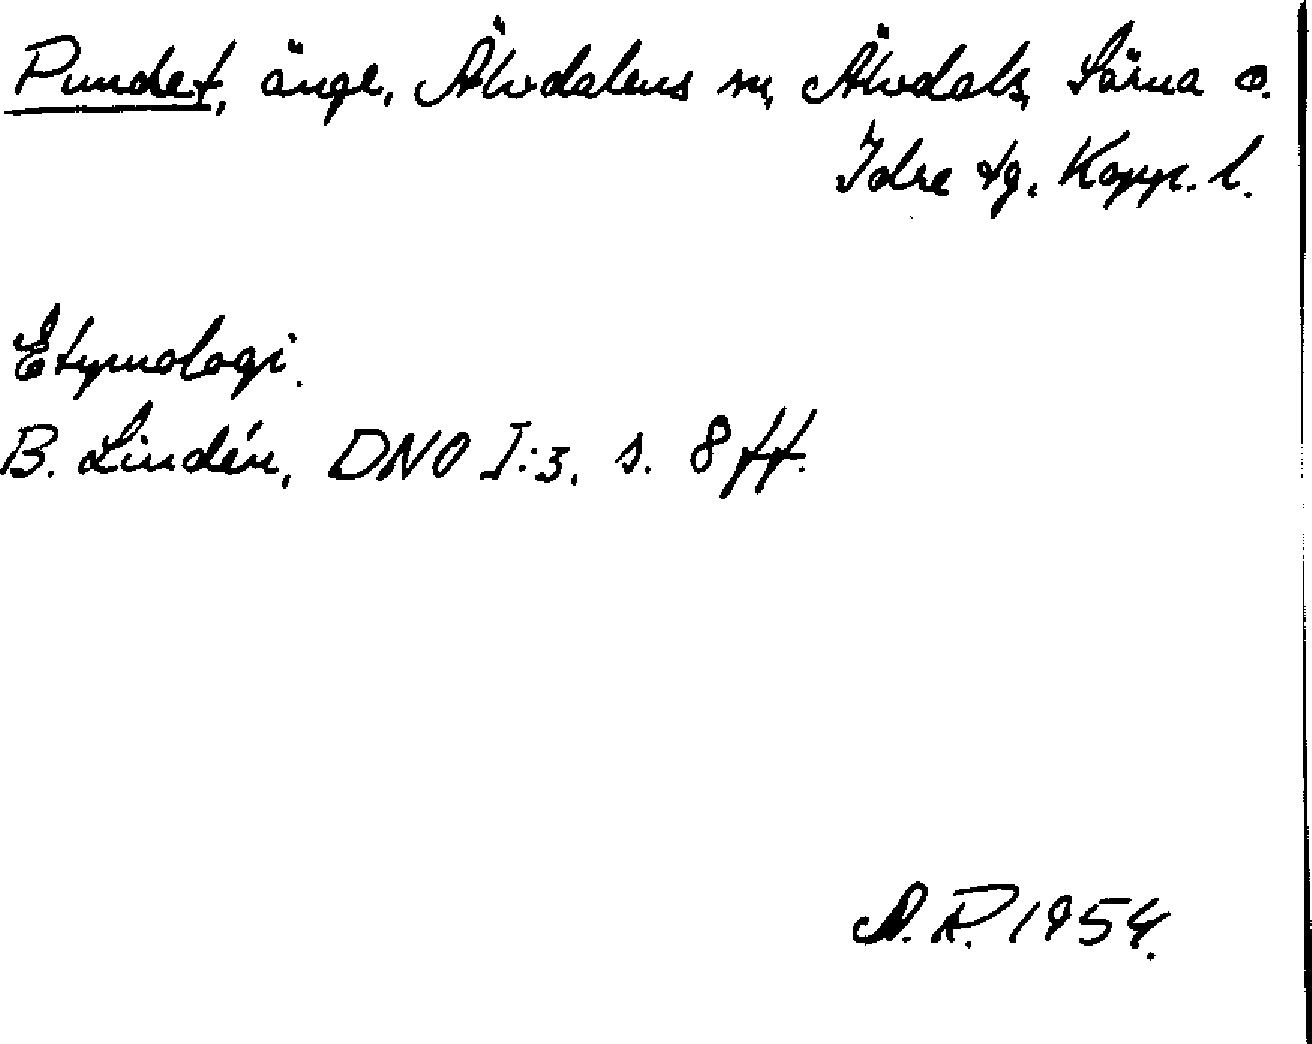 Pundet, ängl, Älvdalens sn, Älvdals, Särna o.
Idre tg. Kopp. l.
Etymologi.
B. Lindén, DNO I:3, s. 8 ff.
A. R. 1954.